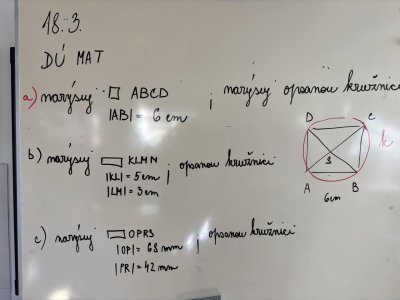 18. 3.
DÚ MAT
a) narýsuj □ ABCD ; narýsuj opsanou kružnici
|AB| = 6 cm
D C
k
S
A B
6cm
b) narýsuj ▭ KLMN ; opsanou kružnici
|KL| = 5 cm
|LM| = 3 cm
c) narýsuj ▭ OPRS ; opsanou kružnici
|OP| = 68 mm
|PR| = 42 mm